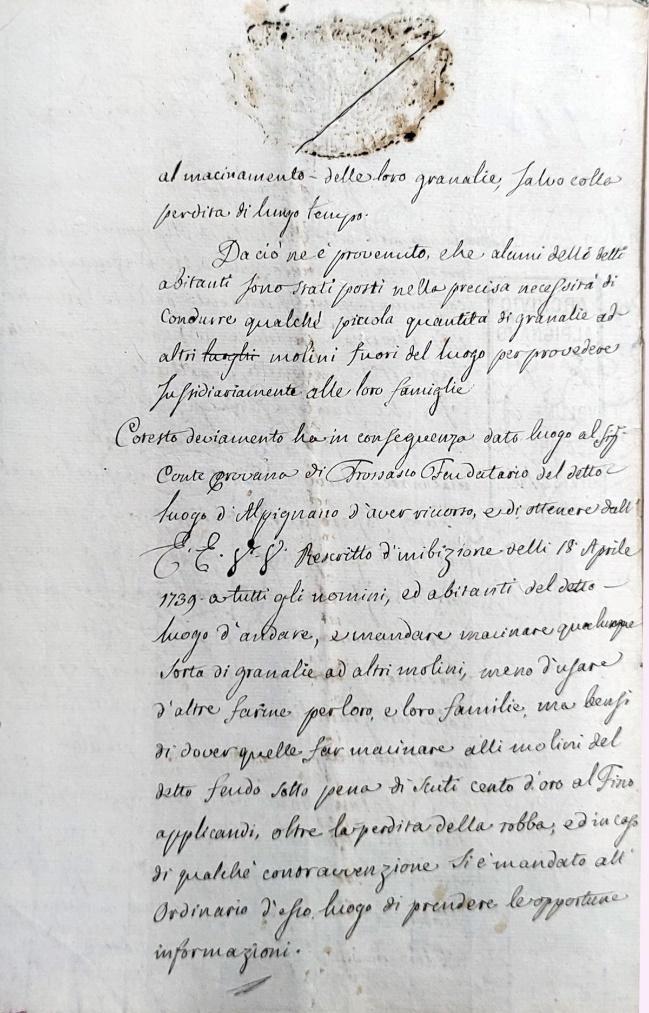 al macinamento - delle loro granalie, salvo colla
perdita di lungo tempo.
Da ciò ne è provenuto, che alcuni delli detti
abitanti sono stati posti nella precisa necessità di
condurre qualché piccola quantità di granalie ad
altri luoghi molini fuori del luogo per provedere
sussidiariamente alle loro famiglie
Cotesto deviamento ha in conseguenza dato luogo al Sig.r
Conte Provana di Frossasco Feudatario del detto
luogo d'Alpignano d'aver ricorso, e di ottenere dall'
E. E. V.re Rescritto d'inibizione delli 18 Aprile
1739. a tutti gli uomini, ed abitanti del detto -
luogo d'andare, e mandare macinare qualunque
sorta di granalie ad altri molini, meno d'usare
d'altre farine per loro, e loro familie, ma bensi
di dover quelle far macinare alli molini del
detto feudo sotto pena di scuti cento d'oro al Fisco
applicandi, oltre la perdita della robba, ed in caso
di qualché contravvenzione si è mandato all'
Ordinario d'esso luogo di prendere le opportune
informazioni.